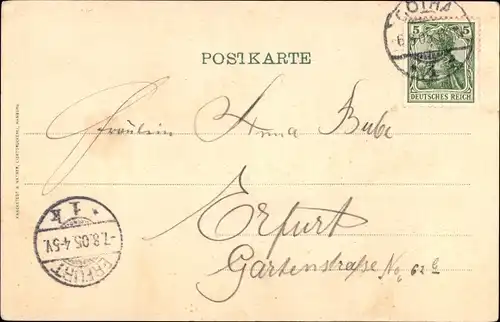 GOTHA
5 5
DEUTSCHES REICH
POSTKARTE
Fräulein Anna Bube
Erfurt
Gartenstraße No 62 b
* 1 k
-7.8.05.4-5V.
ERFURT